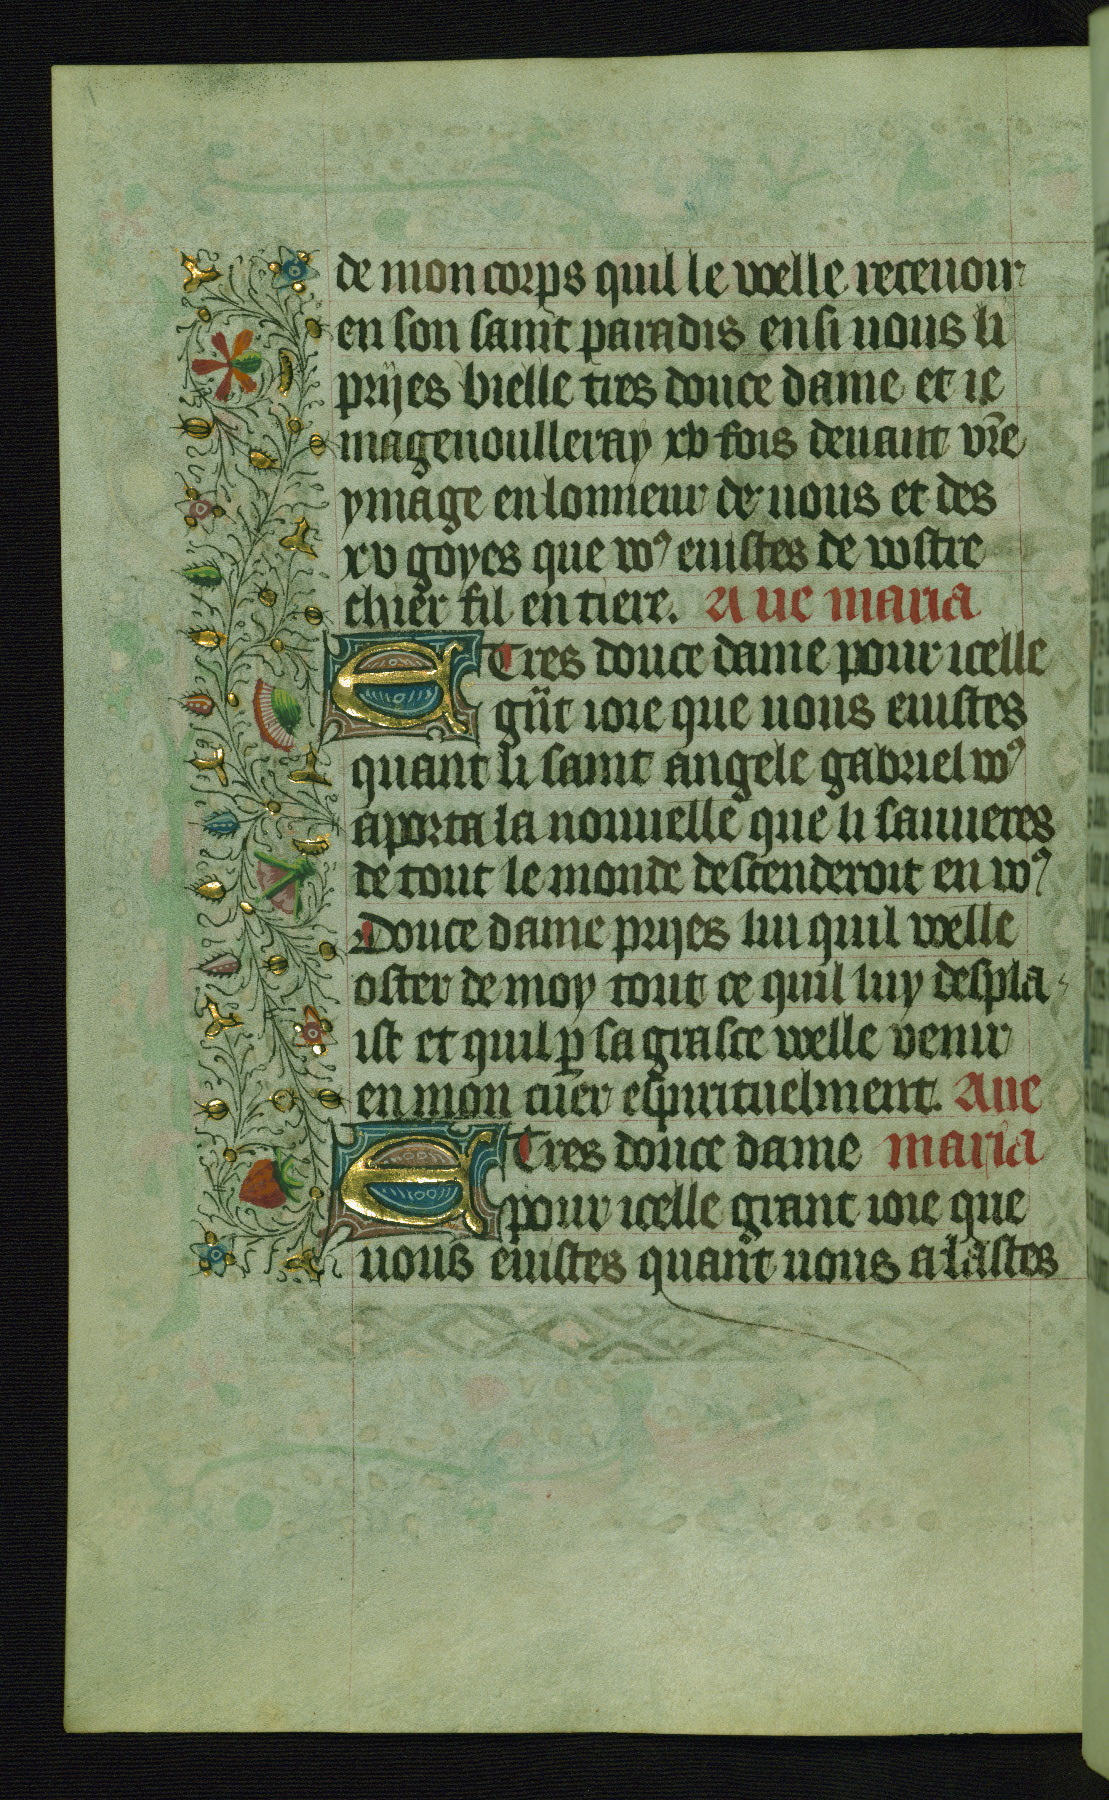 de mon corps quil le welle receuoir
en son saint paradis ensi uous li
prijes bielle tres douce dame et ie
magenoulleray xv fois deuant vr̄e
ymage en lonneur de uous et des
xv goyes que voꝰ euistes de vostre
chier fil en tiere. Aue maria
E Tres douce dame pour icelle
gr̄nt ioie que uous euistes
quant li saint angele gabriel voꝰ
aporta la nouuelle que li sauueres
de tout le monde descenderoit en voꝰ
Douce dame prijes lui quil welle
oster de moy tout ce quil luy despla-
ist et quil ꝑ sa grasce welle venir
en mon cuer espirituelment. Aue
E Tres douce dame maria
pour icelle grant ioie que
uous euistes quant uous alastes